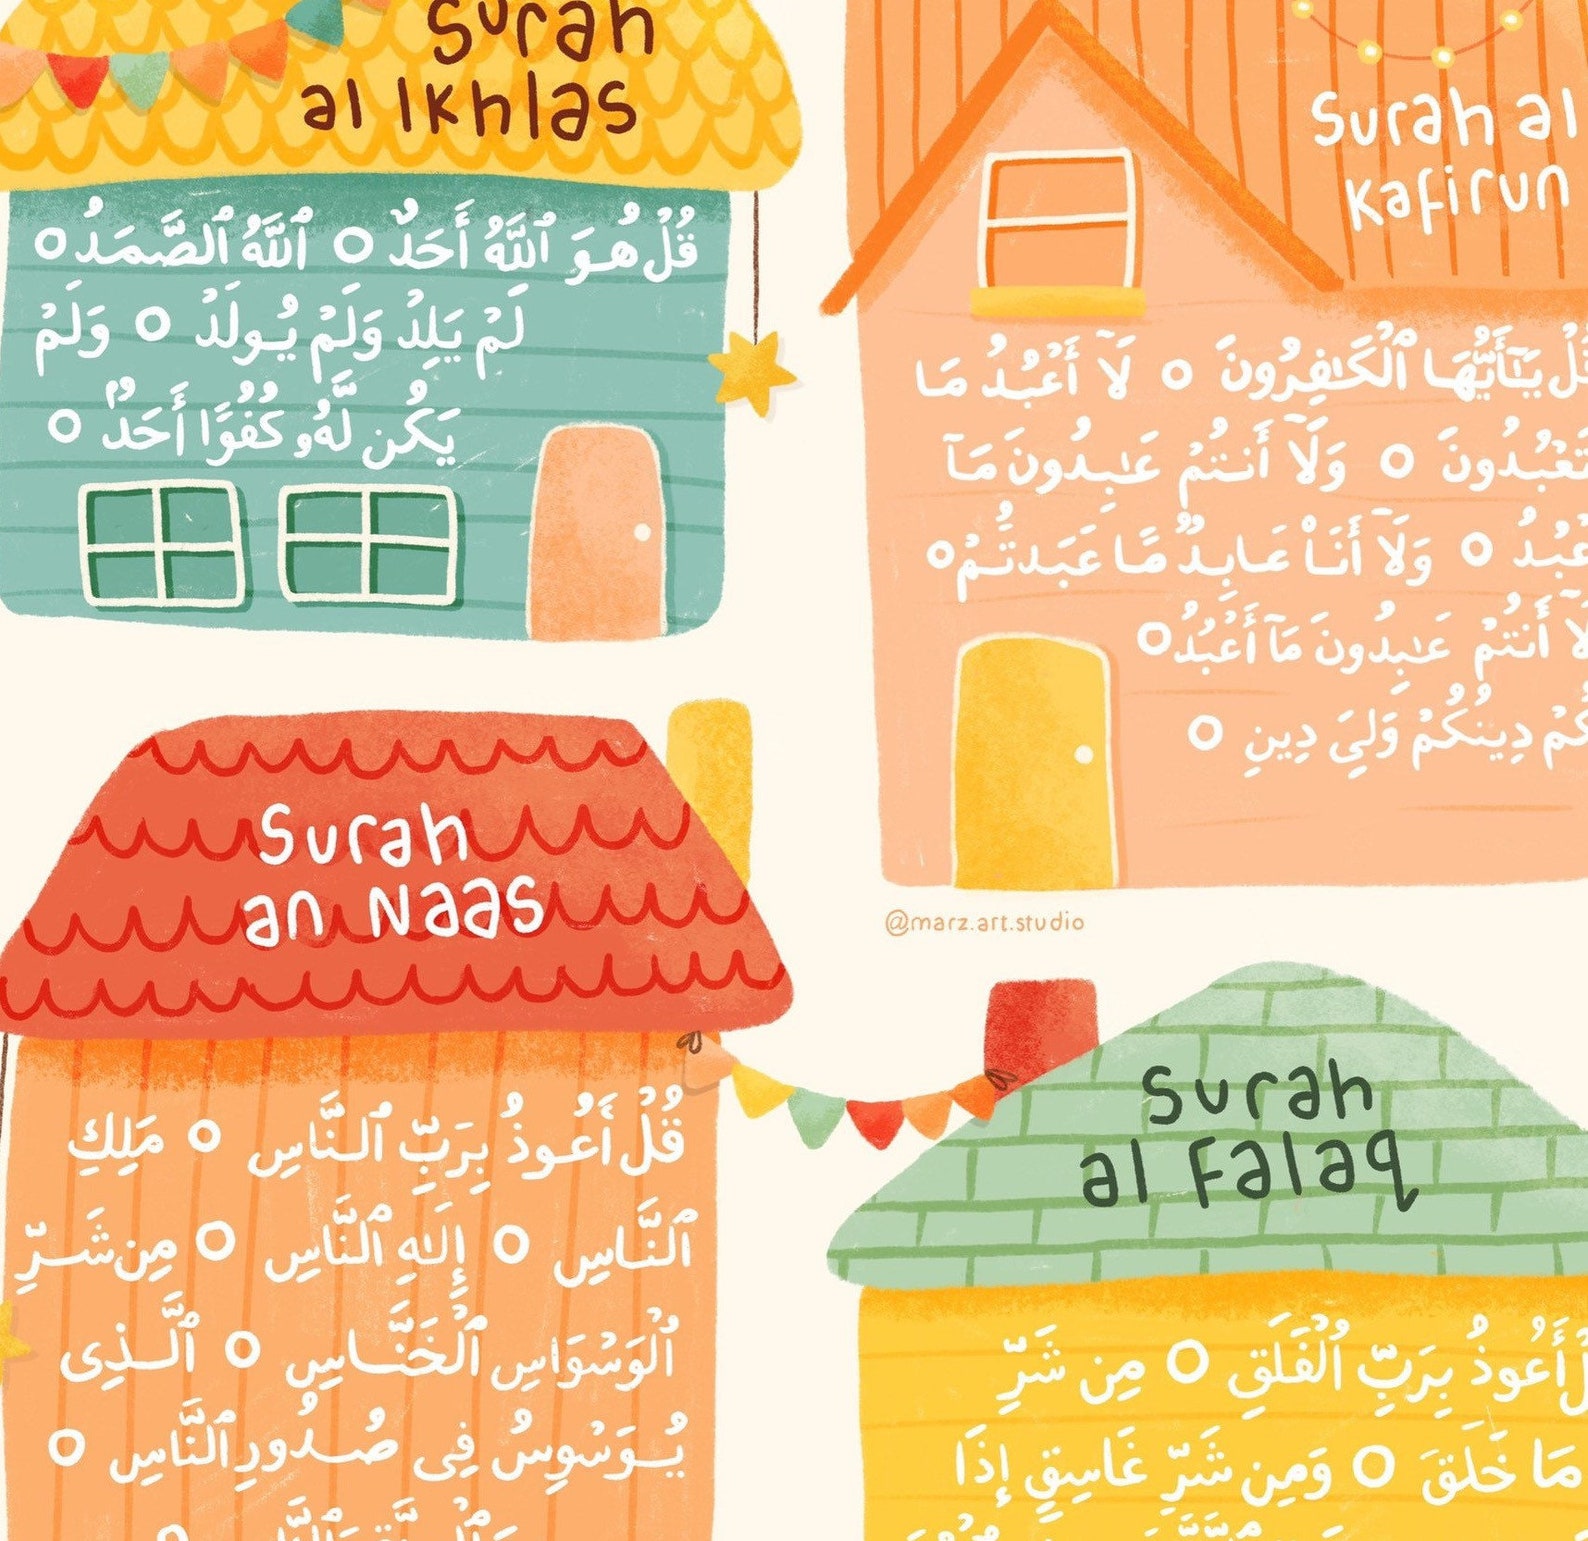 Surah
al Ikhlas
قُلْ هُوَ ٱللَّهُ أَحَدٌ ٱللَّهُ ٱلصَّمَدُ
لَمْ يَلِدْ وَلَمْ يُولَدْ وَلَمْ
يَكُن لَّهُۥ كُفُوًا أَحَدٌۢ
Surah al
Kafirun
قُلْ يَـٰٓأَيُّهَا ٱلْكَـٰفِرُونَ لَآ أَعْبُدُ مَا
تَعْبُدُونَ وَلَآ أَنتُمْ عَـٰبِدُونَ مَآ
أَعْبُدُ وَلَآ أَنَا۠ عَابِدٌ مَّا عَبَدتُّمْ
أَنتُمْ عَـٰبِدُونَ مَآ أَعْبُدُ
دِينُكُمْ وَلِىَ دِينِ
@marz.art.studio
Surah
an Naas
قُلْ أَعُوذُ بِرَبِّ ٱلنَّاسِ مَلِكِ
ٱلنَّاسِ إِلَـٰهِ ٱلنَّاسِ مِن شَرِّ
ٱلْوَسْوَاسِ ٱلْخَنَّاسِ ٱلَّذِى
يُوَسْوِسُ فِى صُدُورِ ٱلنَّاسِ
Surah
al Falaq
أَعُوذُ بِرَبِّ ٱلْفَلَقِ مِن شَرِّ
مَا خَلَقَ وَمِن شَرِّ غَاسِقٍ إِذَا